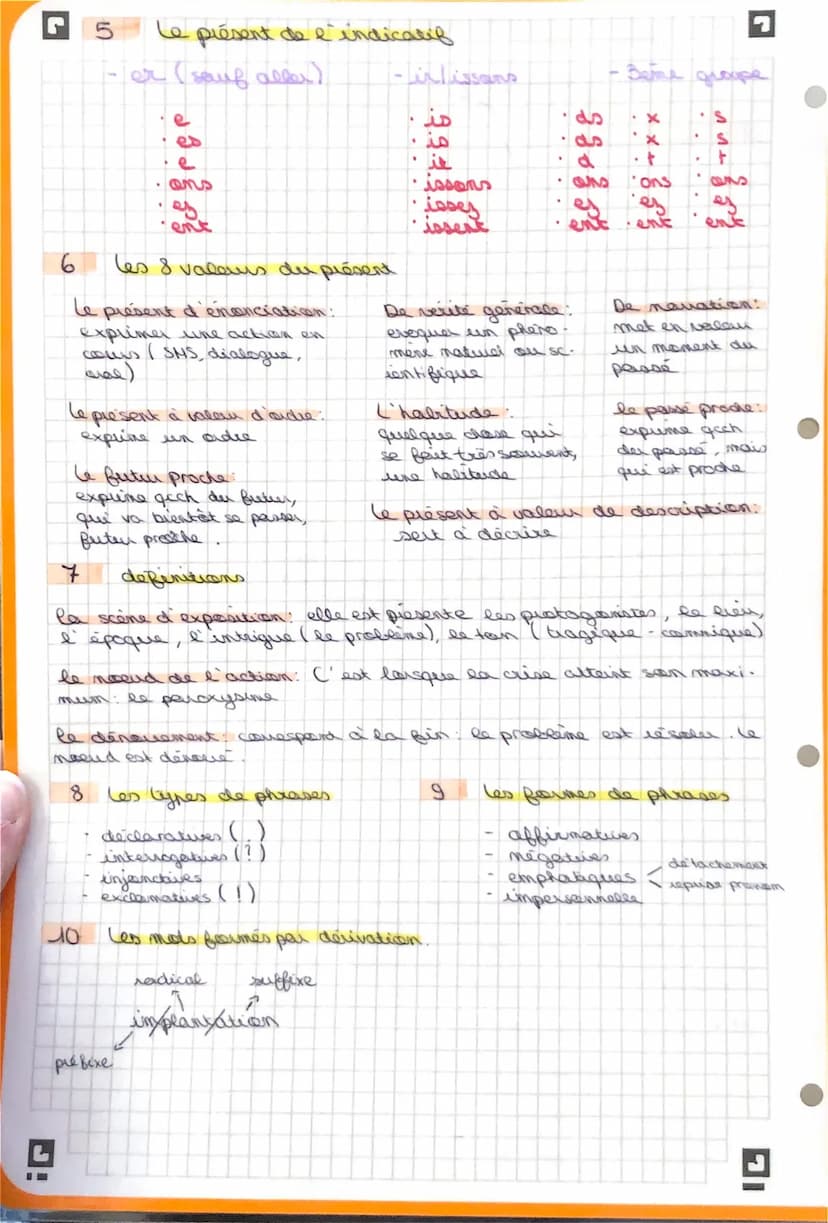 5 Le présent de l'indicatif
- er (sauf aller) - ir/issans - 3ème groupe
· e · is · ds · x · s
· es · is · ds · x · s
· e · it · d · t · t
· ons · issons · ons · ons · ons
· ez · issez · ez · ez · ez
· ent · issent · ent · ent · ent
6 Les 8 valeurs du présent
Le présent d'énonciation:
exprimer une action en
cours (SMS, dialogue,
oral)
De vérité générale:
evoquer un phéno-
mène naturel ou sc-
ientifique
De narration:
met en valeur
un moment du
passé
Le présent à valeur d'ordre:
exprime un ordre
L'habitude:
quelque chose qui
se fait très souvent,
une habitude
le passé proche:
exprime qcch
du passé, mais
qui est proche
Le futur proche:
exprime qcch du futur,
qui va bientôt se passer,
futur proche.
Le présent à valeur de description:
sert à décrire
7 definitions
la scène d'exposition: elle est présente les protagonistes, le lieu,
l'époque, l'intrigue (le problème), le ton (tragique - comnique)
le nœud de l'action: C'est lorsque la crise atteint son maxi-
mum: le paroxysme
le dénouement: correspond à la fin: le problème est résolu. Le
nœud est dénoué.
8 Les types de phrases
- déclaratives (.)
- interrogatives (?)
- injonctives
- exclamatives (!)
9 Les formes de phrases
- affirmatives
- négatives
- emphatiques détachement
reprise pronom
- impersonnelle
10 Les mots formés par dérivation.
radical suffixe
im/plant/ation
préfixe